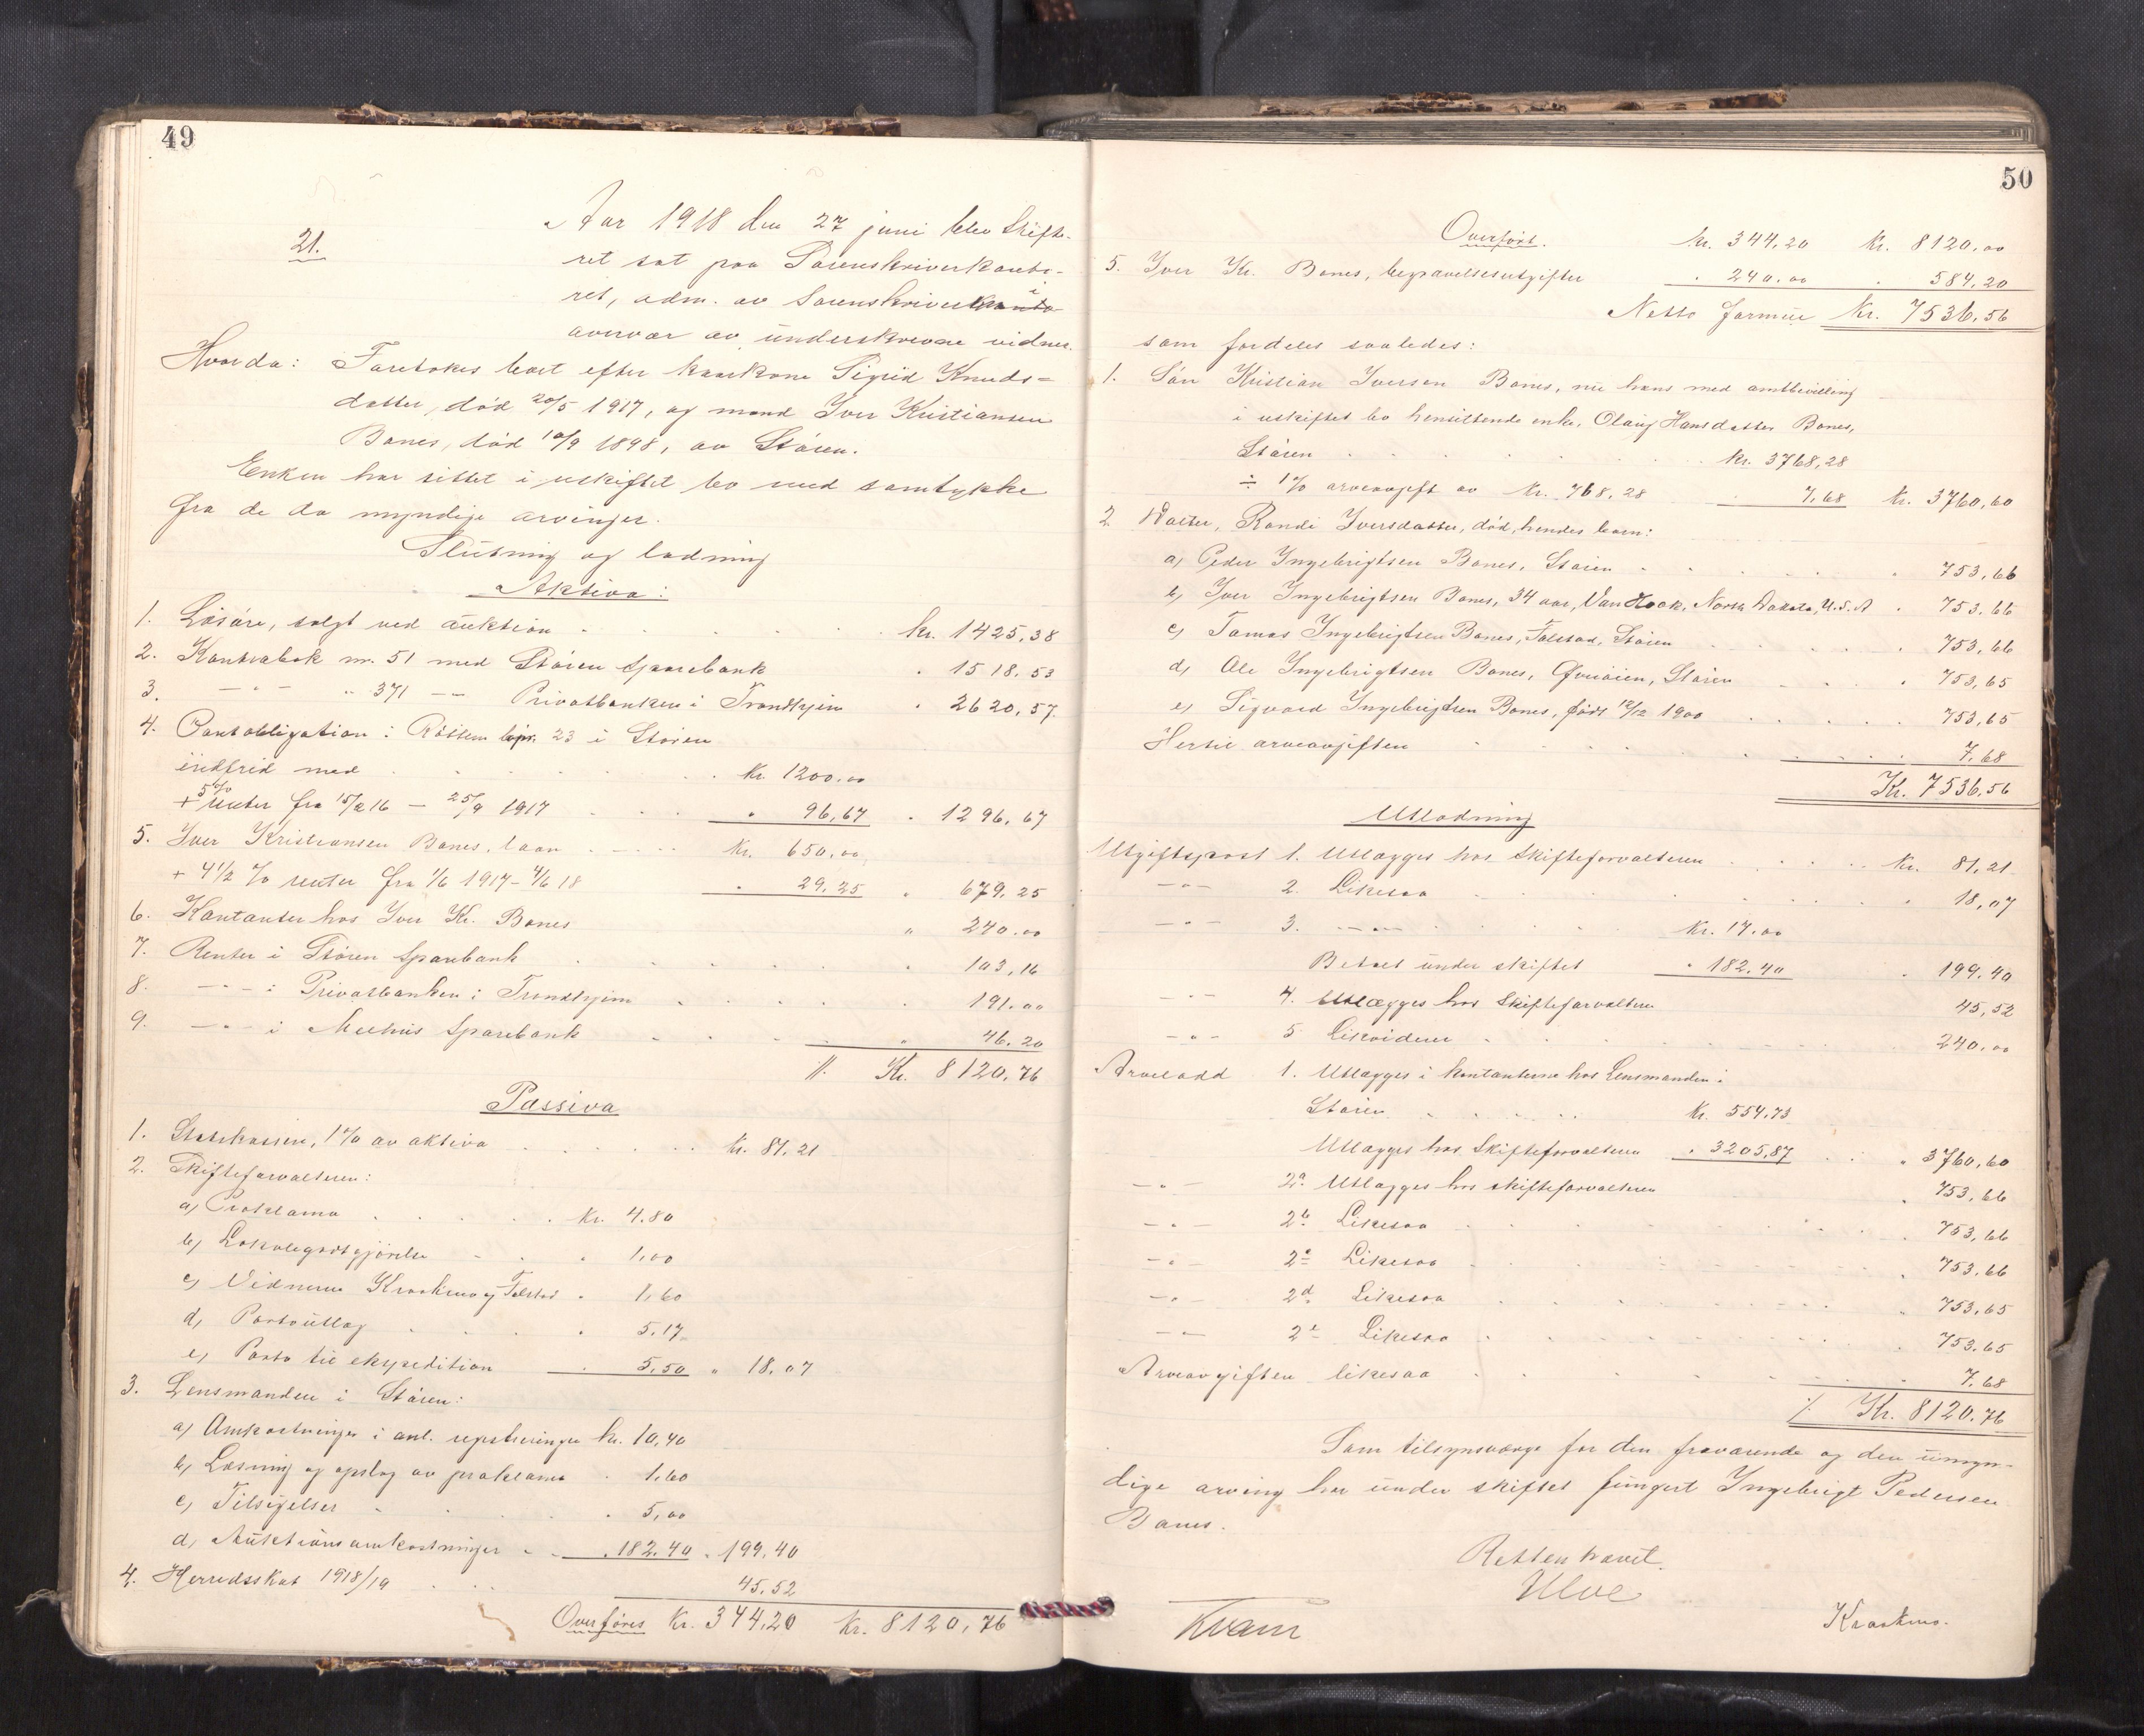 49
21.
Aar 1918 den 27 juni blev Skifte-
ret sat paa Sorenskriverkonto-
ret, adm. av Sorenskriveren i
overvær av underskrevne vidner.
Hvorda: Foretokes boet efter kaarkone Sigrid Knuds=
datter, död 20/5 1917, og mand Iver Kristiansen
Bones, död 10/9 1898, av Stören.
Enken har sittet i uskiftet bo med samtykke
fra de da myndige arvinger.
Slutning og lodning
Aktiva:
1. Lösöre, solgt ved auktion kr. 1425,38
2. Kontrabok nr. 51 med Stören Sparebank " 1518,53
3. —"— " 371 —"— Privatbanken i Trondhjem " 2620,57
4. Pantobligation i Röttem bnr. 23 i Stören
indfrid med Kr. 1200.00
+ 5% renter fra 15/2 16 — 25/9 1917 " 96,67 " 1296,67
5. Iver Kristiansen Bones, laan Kr. 650,00
+ 4 1/2 % renter fra 1/6 1917 - 1/6 18 " 29,25 " 679,25
6. Kontanter hos Iver Kr. Bones " 240.00
7. Renter i Stören Sparebank " 103,16
8. —"— i Privatbanken i Trondhjem " 191.00
9. —"— i Melhus Sparebank " 46.20
Kr. 8120,76
Passiva
1. Statskassen, 1% av aktiva Kr. 81,21
2. Skifteforvalteren:
a) Proklama Kr. 4.80
b) Lokalegodtgjörelse " 1,00
c) Vidnerne Kraakmo og Folstad " 1,60
d) Portoutlæg " 5.17
e) Porto til ekspedition " 5,50 " 18,07
3. Lensmanden i Stören:
a) Omkostninger i anl. registreringen kr. 10,40
b) Læsning og opslag av proklama " 1.60
c) Tilsigelser " 5,00
d) Auktionsomkostninger " 182.40 " 199,40
4. Herredsskat 1918/19 45.52
Overföres Kr. 344,20 Kr. 8120,76
50
Overfört. Kr. 344,20 Kr. 8120.00
5. Iver Kr. Bones, begravelsesutgifter " 240.00 " 584,20
Netto formue Kr. 7536,56
som fordeles saaledes:
1. Sön Kristian Iversen Bones, nu hans med amtbevilling
i uskiftet bo hensittende enke, Olaug Hansdatter Bones,
Stören Kr. 3768,28
÷ 1% arveavgift av Kr. 768,28 " 7,68 Kr. 3760,60
2 Datter, Randi Iversdatter, död, hendes barn:
a) Peder Ingebrigtsen Bones, Stören " 753,66
b) Iver Ingebrigtsen Bones, 34 aar, Van Hook, North Dakota, U.S.A " 753.66
c) Tomas Ingebrigtsen Bones, Folstad, Stören " 753,66
d) Ole Ingebrigtsen Bones, Stören " 753,65
e) Sigvard Ingebrigtsen Bones, födt 12/12 1900 753,65
Hertil arveavgiften 7.68
Kr. 7536,56
Utlodning
Utgiftspost 1. Utlægges hos Skifteforvalteren Kr. 81,21
—"— 2. Likesaa " 18,07
—"— 3. —"— Kr. 17.00
Betalt under skiftet " 182.40 " 199.40
—"— 4. Utlægges hos Skifteforvalteren 45,52
—"— 5 Likvideres 240.00
Arvelodd 1. Utlægges i kontanterne hos Lensmanden i
Stören Kr. 554,73
Utlægges hos Skifteforvalteren " 3205,87 " 3760,60
—"— 2a Utlægges hos skifteforvalteren " 753,66
—"— 2b Likesaa " 753,66
—"— 2c Likesaa " 753.66
—"— 2d Likesaa " 753,65
—"— 2e Likesaa " 753.65
Arveavgiften likesaa 7.68
Kr. 8120.76
Som tilsynsværge for den fraværende og den umyn-
dige arving har under skiftet fungert Ingebrigt Pedersen
Bones.
Retten hævet.
Uloe
Kvam
Kraakmo.